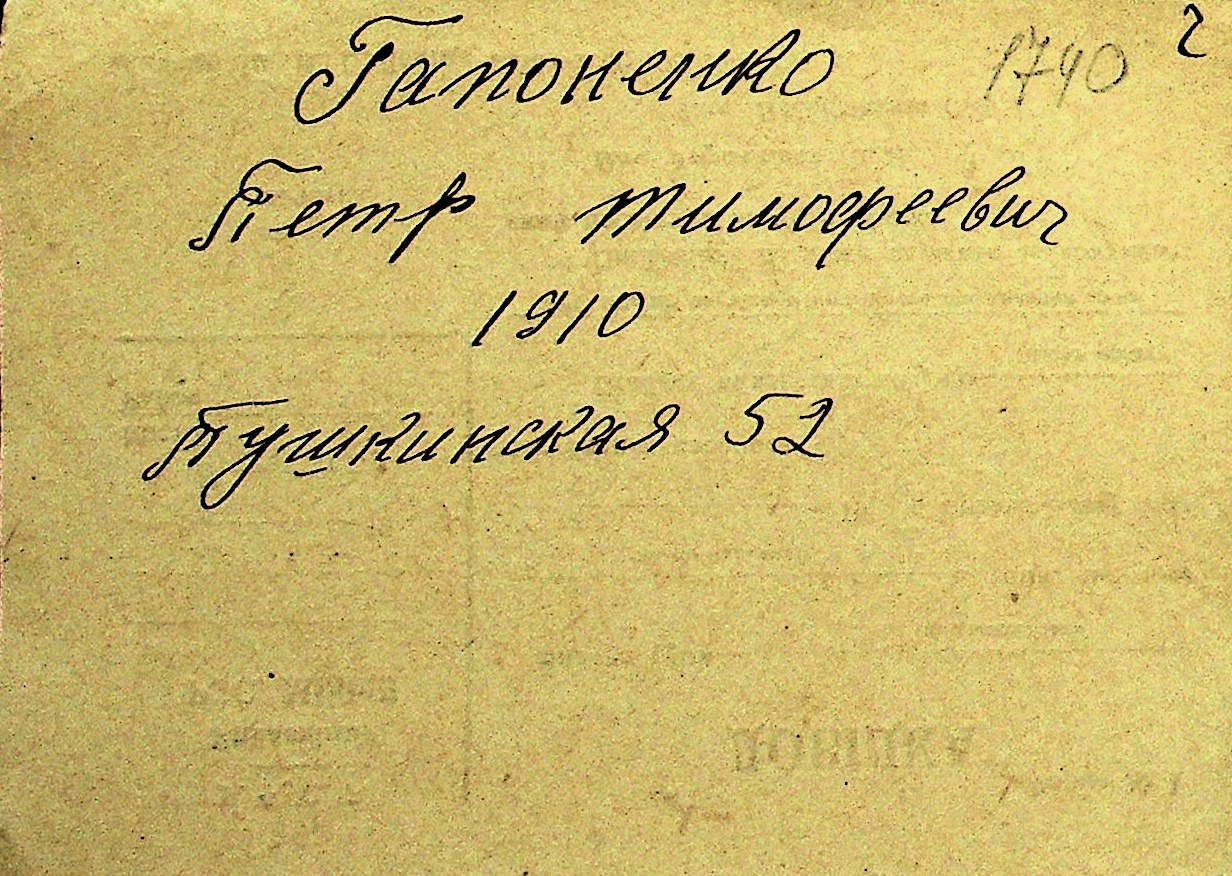 Гапоненко 1740 2
Петр Тимофеевич
1910
Пушкинская 52